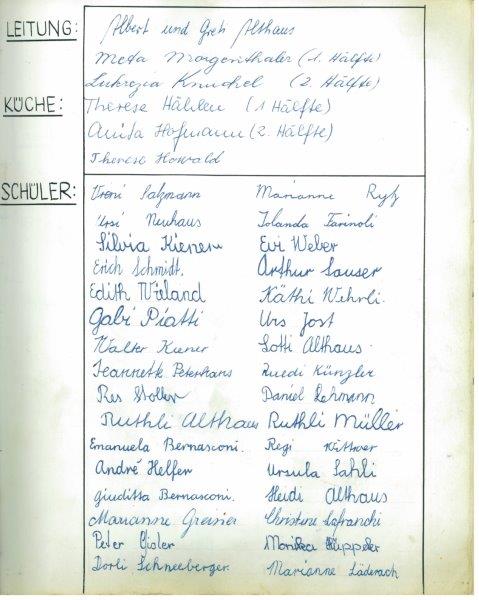 LEITUNG: Albert und Greti Althaus
Meta Morgenthaler (1. Hälfte)
Lukrezia Knuchel (2. Hälfte)
KÜCHE: Therese Hählen (1 Hälfte)
Anita Hofmann (2. Hälfte)
Therese Howald
SCHÜLER: Vreni Salzmann Marianne Ryf
Ursi Neuhaus Iolanda Farinoli
Silvia Kiener Evi Weber
Erich Schmidt. Arthur Sauser
Edith Wieland Käthi Wehrli.
Gabi Piatti Urs Jost
Walter Kiener Lotti Althaus
Jeannette Peterhans Ruedi Künzler
Res Stoller Daniel Lehmann
Ruthli Althaus Ruthli Müller
Emanuela Bernasconi. Regi Wittwer
André Helfer Ursula Sahli
Giuditta Bernasconi. Heidi Althaus
Marianne Christine Lafranchi
Peter Gisler Monika Küpper
Dorli Schneeberger. Marianne Läderach